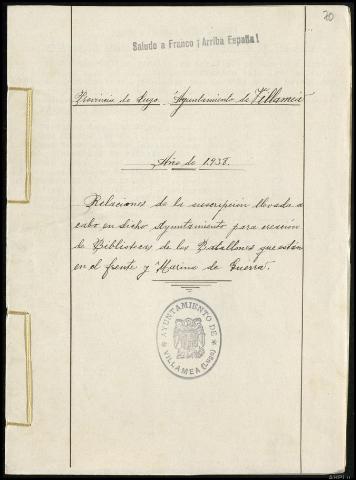 20
Saludo a Franco ¡Arriba España!
Provincia de Lugo. Ayuntamiento de Villamea
Año de 1.938.
Relaciones de la suscripción llevada a
cabo en dicho Ayuntamiento para creación
de Bibliotecas de los Batallones que están
en el frente y Marina de Guerra.
AYUNTAMIENTO DE
VILLAMEA (Lugo)